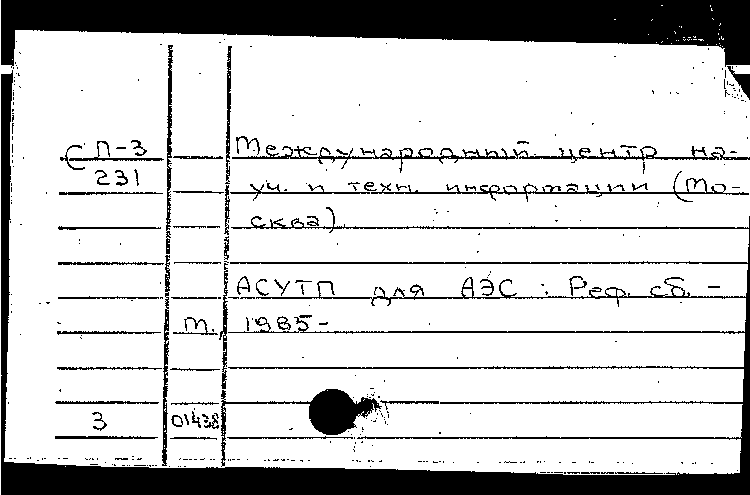 С П-3
231
Международный центр на-
уч. и техн. информации (Мо-
сква)
АСУТП для АЭС : Реф. сб. -
М., 1985-
3 01438